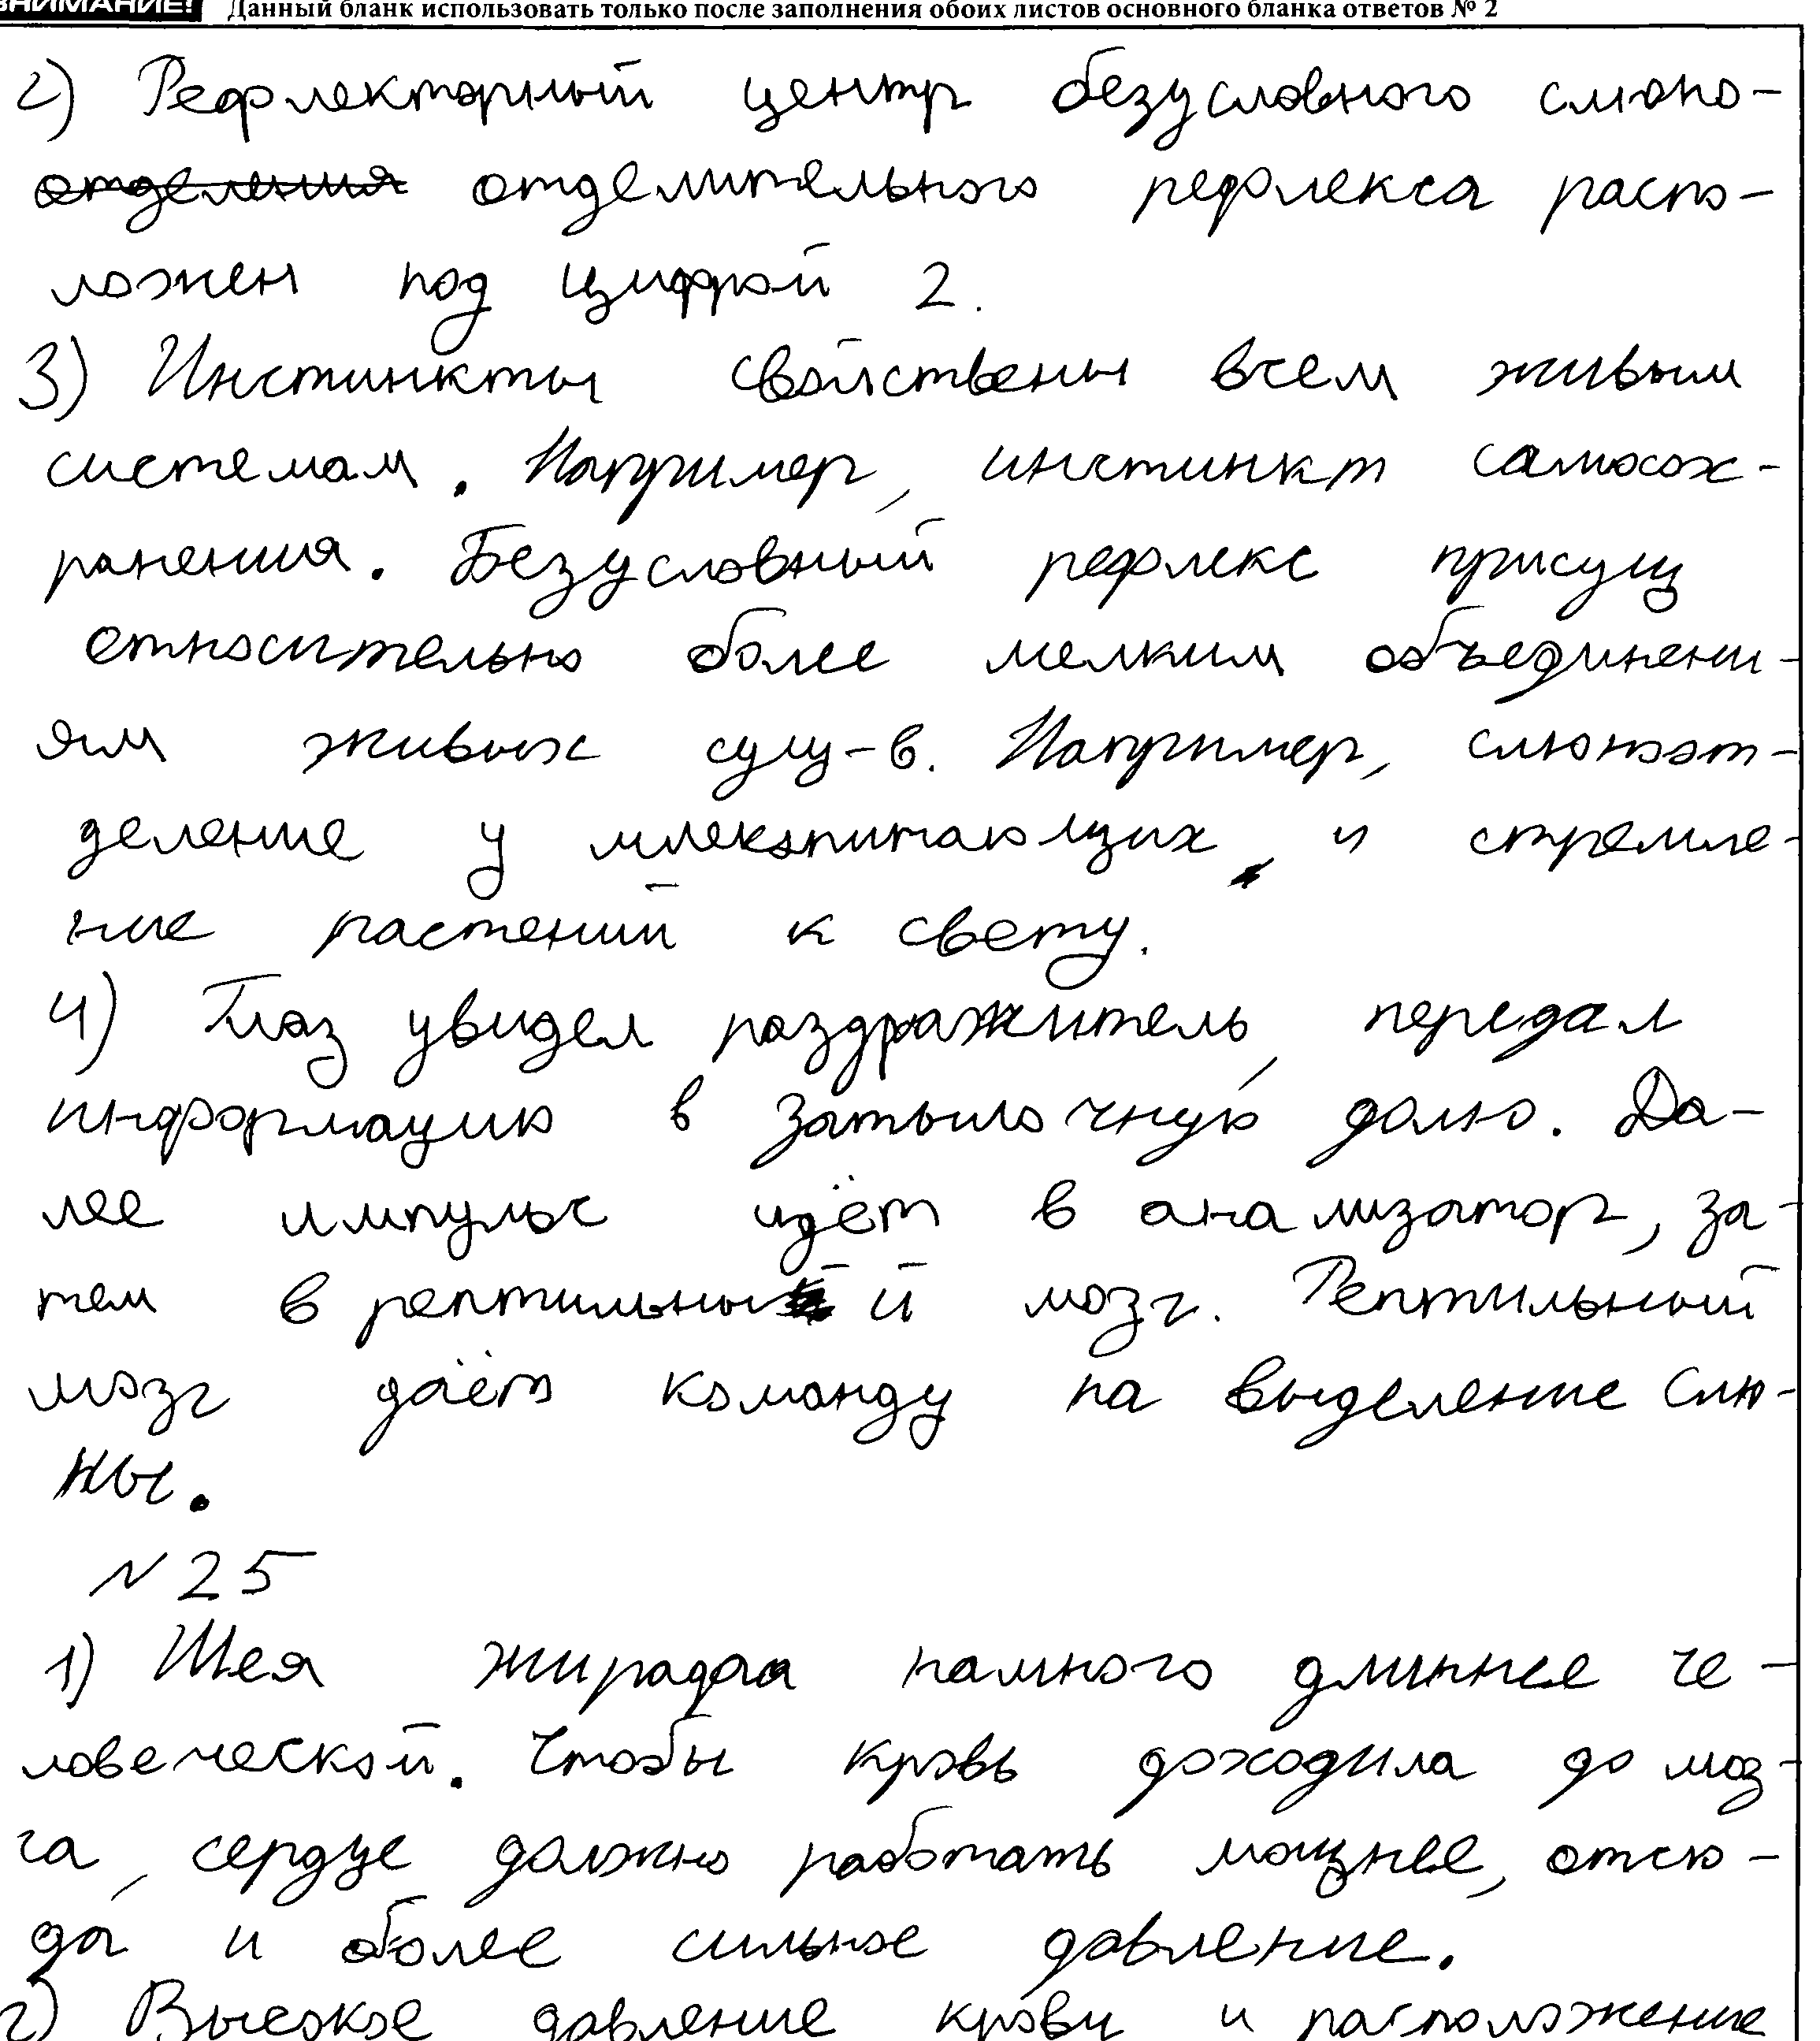 ВНИМАНИЕ! Данный бланк использовать только после заполнения обоих листов основного бланка ответов № 2
2) Рефлекторный центр безусловного слюно-
отделения отделительного рефлекса распо-
ложен под цифрой 2.
3) Инстинкты свойственны всем живым
системам. Например, инстинкт самосох-
ранения. Безусловный рефлекс присущ
относительно более мелким объединени-
ям живых сущ-в. Например, слюноот-
деление у млекопитающих, и стремле-
ние растений к свету.
4) Глаз увидел раздражитель, передал
информацию в затылочную долю. Да-
лее импульс идёт в анализатор, за-
тем в рептильный мозг. Рептильный
мозг даёт команду на выделение слю-
ны.
N 25
1) Шея жирафа намного длиннее че-
ловеческой. Чтобы кровь доходила до моз-
га, сердце должно работать мощнее, отсю-
да и более сильное давление.
2) Высокое давление крови и расположение